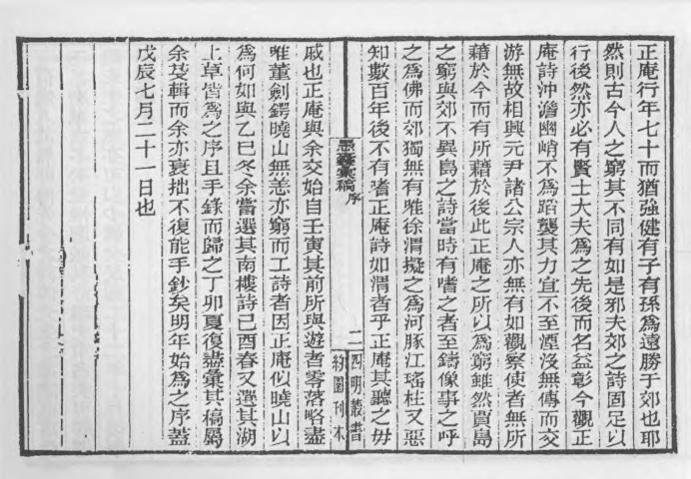 正庵行年七十而猶強健有子有孫爲遠勝于郊也耶
然則古今人之窮其不同有如是邪夫郊之詩固足以
行後然亦必有賢士大夫爲之先後而名益彰今觀正
庵詩沖澹幽峭不爲蹈襲其力宜不至湮沒無傳而交
游無故相興元尹諸公宗人亦無有如觀察使者無所
藉於今而有所藉於後此正庵之所以爲窮雖然賈島
之窮與郊不異島之詩當時有嗜之者至鑄像事之呼
之爲佛而郊獨無有唯徐渭擬之爲河豚江瑤柱又惡
知數百年後不有嗜正庵詩如渭者乎正庵其聽之毋
稾稿 序
二 四明叢書
約園刊本
戚也正庵與余交始自壬寅其前所與遊者零落略盡
唯董劍鍔曉山無恙亦窮而工詩者因正庵似曉山以
爲何如與乙巳冬余嘗選其南樓詩己酉春又選其湖
上草皆爲之序且手錄而歸之丁卯夏復盡彙其稿屬
余芟輯而余亦衰拙不復能手鈔矣明年始爲之序蓋
戊辰七月二十一日也